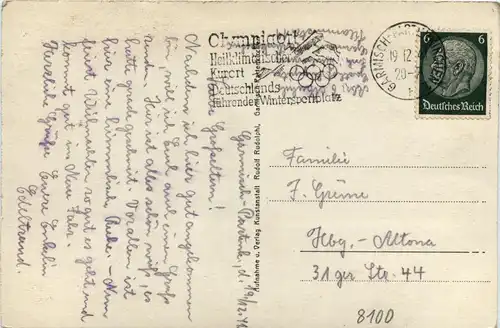 Olympiaort
Heilklimatischer
Kurort
Deutschlands
führender Wintersportplatz
GARMISCH-PARTENKIRCHEN
19.12.
20-2
6 6
Deutsches Reich
Garmisch-Partenk., d. 19/12.41
Großeltern!
Nachdem ich hier gut angekommen
bin, will ich Euch auch einen Gruß
senden. Hier ist alles schön weiß, es
hatte grade geschneit. Vor allem ist
hier eine himmlische Ruhe. – Nun
feiert Weihnachten so gut es geht und
kommt gut in Neue Jahr.
Herzliche Grüße Eure Enkelin
Edeltraud.
Aufnahme u. Verlag Kunstanstalt Rudolf Rudolphi, Garmisch-
Familie
F. Grüne
Hbg.-Altona
31ger Str. 44
8100